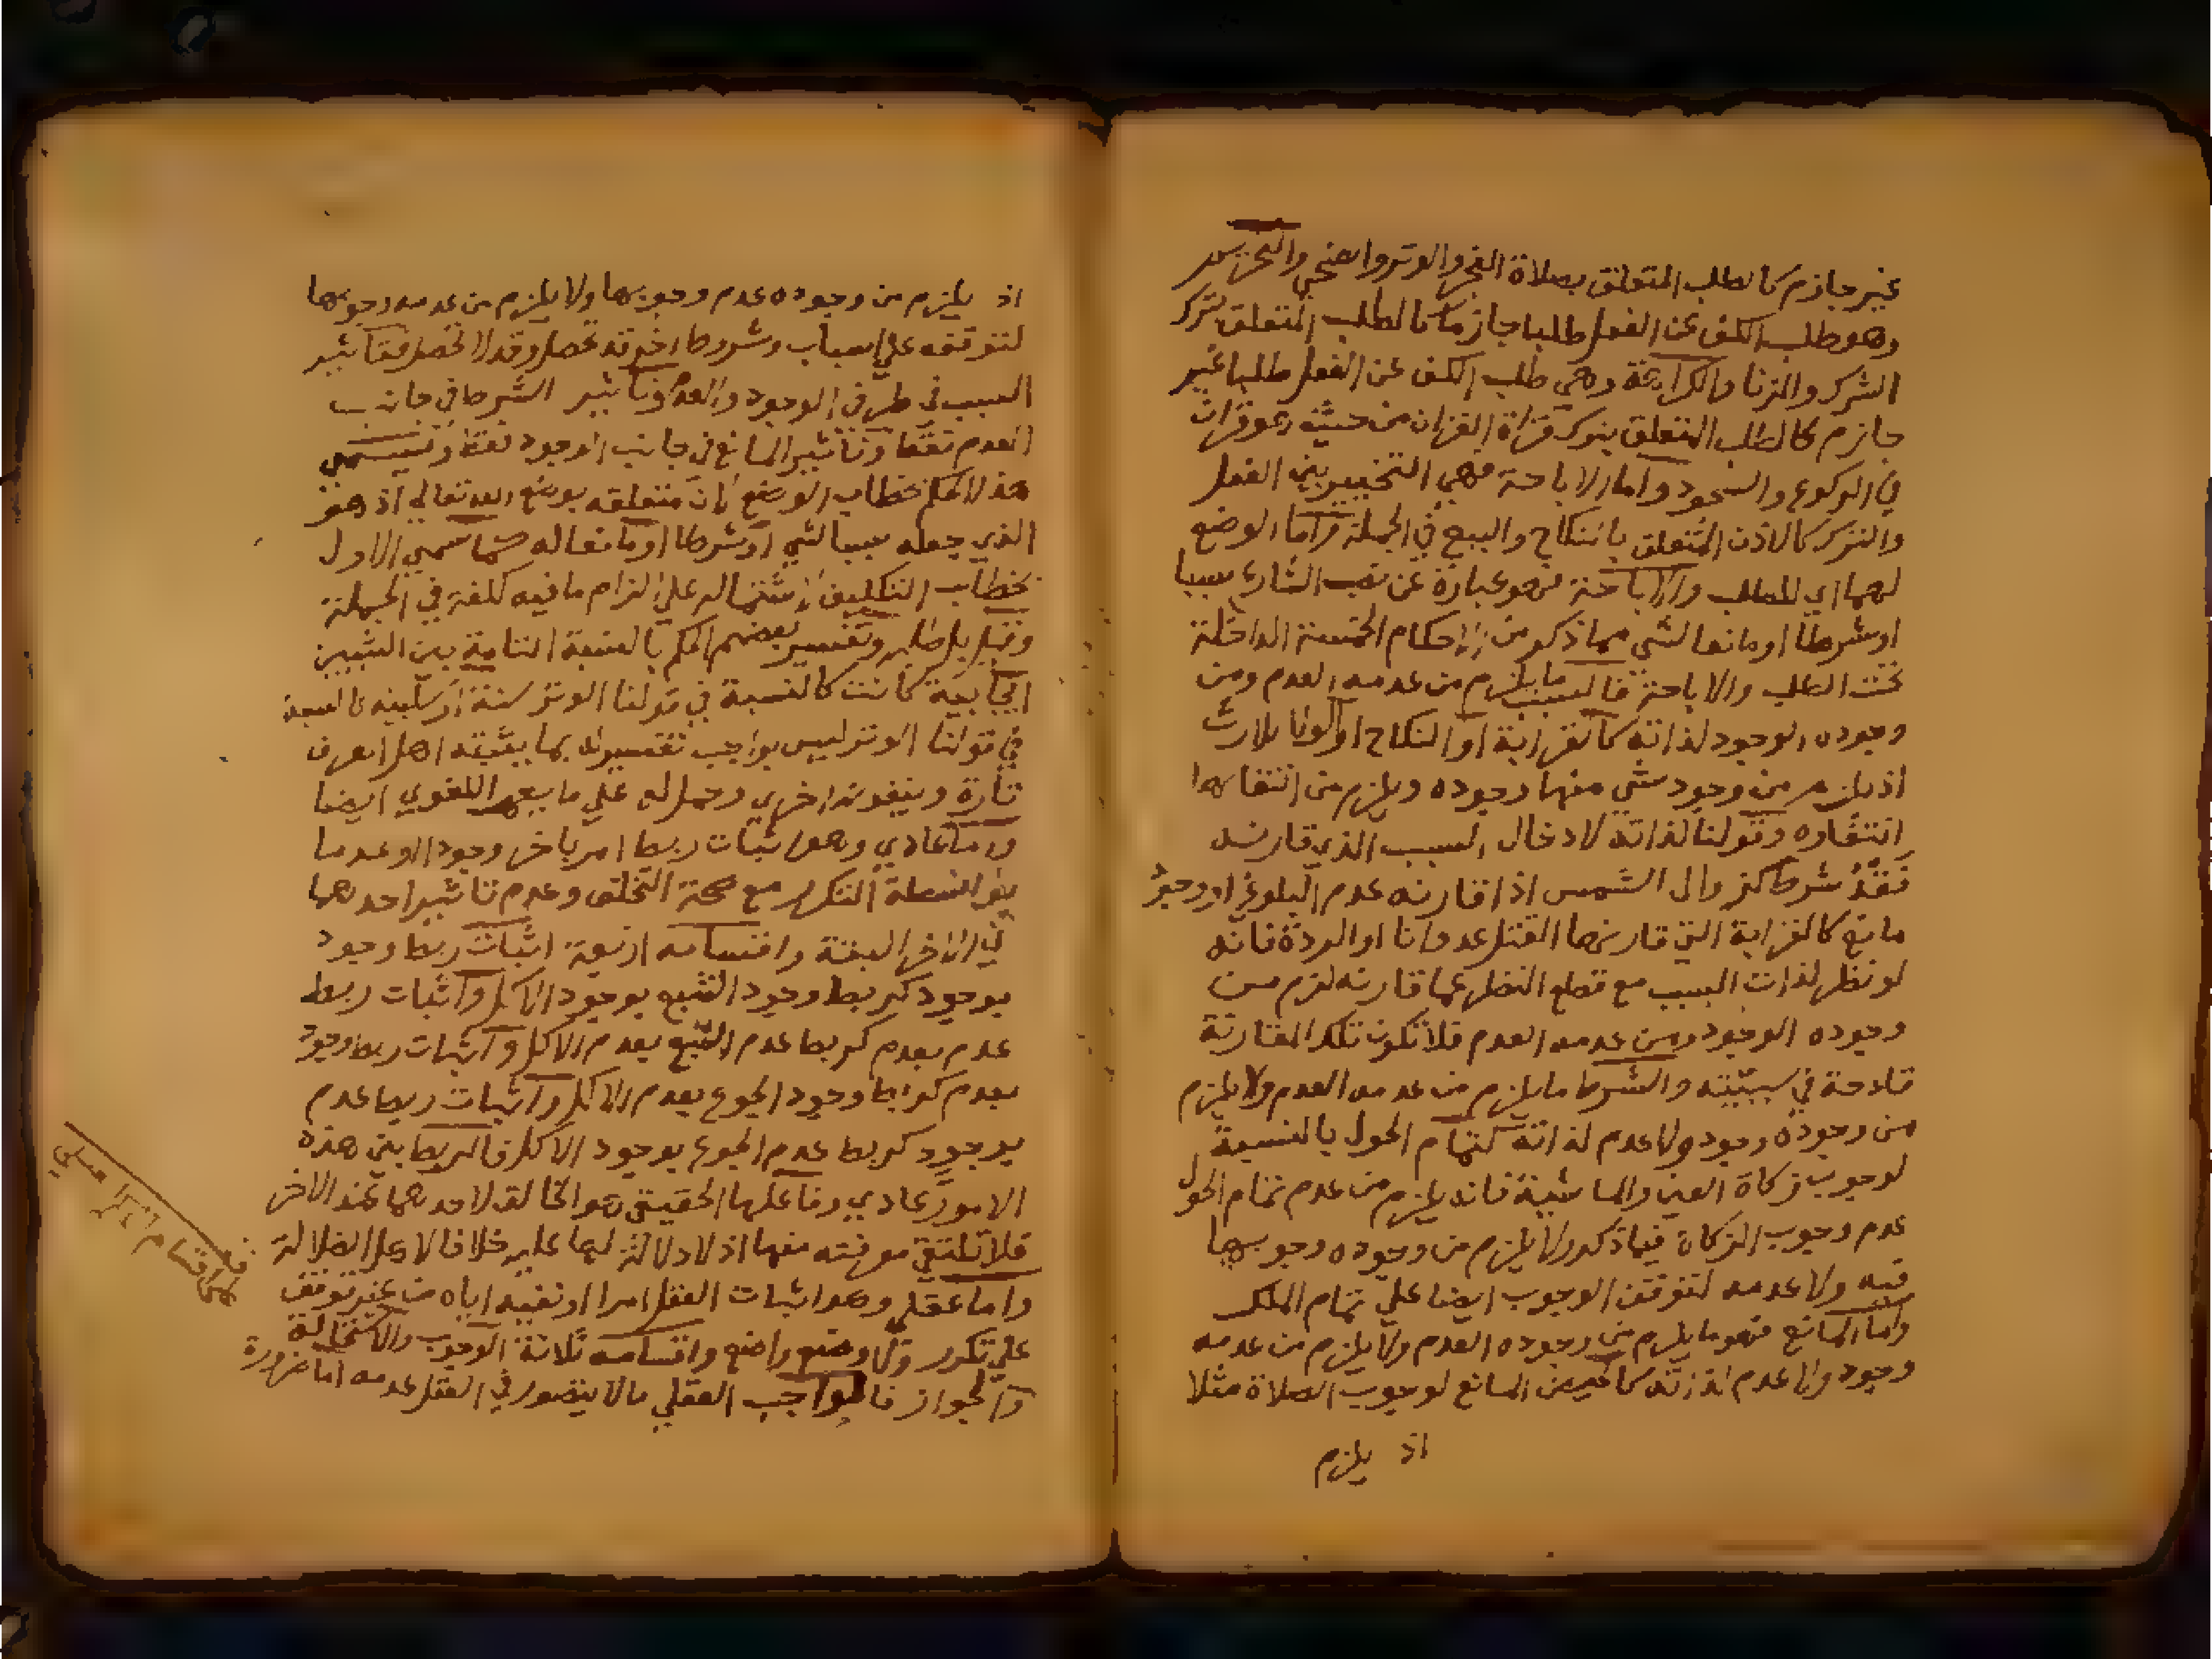 غير جازم كالطلب المتعلق بصلاة الفجر والوتر والضحي والتحريم
وهو طلب الكف عن الفعل طلبا جازما كالطلب المتعلق بترك
الشرك والزنا والكراهة وهي طلب الكف عن الفعل طلبا غير
جازم كالطلب المتعلق بترك قراة القران من حيث هو قران
في الركوع والسجود واما الاباحة فهي التخيير بين الفعل
والترك كالاذن المتعلق بالنكاح والبيع في الجملة واما الوضع
لهما اي للطلب والاباحة فهو عبارة عن نصب الشارع سببا
او شرطا او مانعا لشي مما ذكر من الاحكام الخمسة الداخلة
تحت الطلب والاباحة فالسبب ما يلزم من عدمه العدم ومن
وجوده الوجود لذاته كالقرابة او النكاح او الولا بلارث
اذ يلزم من وجود شي منها وجوده ويلزم من انتفاها
انتفاوه وقولنا لذاته لادخال السبب الذي قارنه
فقد شرط كزوال الشمس اذا قارنه عدم البلوغ او وجود
مانع كالقرابة التي قارنها القتل عدوانا او الردة فانه
لو نظر لذات السبب مع قطع النظر عما قارنه لزم من
وجوده الوجود ومن عدمه العدم فلا تكون تلك المقارنة
قادحة في سببيته والشرط ما يلزم من عدمه العدم ولا يلزم
من وجوده وجود ولا عدم لذاته كتمام الحول بالنسبة
لوجوب زكاة العين والماشية فانه يلزم من عدم تمام الحول
عدم وجوب الزكاة فيما ذكر ولا يلزم من وجوده وجوبها
فيه ولا عدمه لتوقف الوجوب ايضا علي تمام الملك
واما المانع فهو ما يلزم من وجوده العدم ولا يلزم من عدمه
وجود ولا عدم لذاته كالحيض المانع لوجوب الصلاة مثلا
اذ يلزم
اذ يلزم من وجوده عدم وجوبها ولا يلزم من عدمه وجوبها
لتوقفه علي اسباب وشروط اخر قد تحصل وقد لا تحصل فتاثير
السبب في طرفي الوجود والعدم وتاثير الشرط في جانب
العدم فقط وتاثير المانع في جانب الوجود فقط ويسمي
هذا الحكم خطاب الوضع لان متعلقه بوضع الله تعالي اذ هو
الذي جعله سببا لشي او شرطا او مانعا له كما سمي الاول
بخطاب التكليف لاشتماله علي الزام ما فيه كلفة في الجملة
وقيل بل وتفسير بعضهم الحكم بالنسبة التامة بين الشيين
ايجابية كانت كالنسبة في قولنا الوتر سنة او سلبية كالنسبة
في قولنا الوتر ليس بواجب تفسير له بما يثبته اهل العرف
تارة وينفونه اخري وحمل له علي ما يعم اللغوي ايضا
واما عادي وهو اثبات ربط امر باخر وجودا او عدما
بواسطة التكرر مع صحة التخلف وعدم تاثير احدهما
في الاخر البتة واقسامه اربعة اثبات ربط وجود
بوجود كربط وجود الشبع بوجود الاكل واثبات ربط
عدم بعدم كربط عدم الشبع بعدم الاكل واثبات ربط وجود
بعدم كربط وجود الجوع بعدم الاكل واثبات ربط عدم
بوجود كربط عدم الجوع بوجود الاكل فالربط بين هذه
الامور عادي وفاعلها الحقيقي هو الخالق لاحدهما عند الاخر
فلا تلتقي معرفته منها اذ لا دلالة لها عليه خلافا لاهل الضلالة
واما عقلي وهو اثبات العقل امرا او نفيه اياه من غير توقف
علي تكرر ولا وضع واضع واقسامه ثلاثة الوجوب والاستحالة
والجواز فالواجب العقلي ما لا يتصور في العقل عدمه اما ضرورة